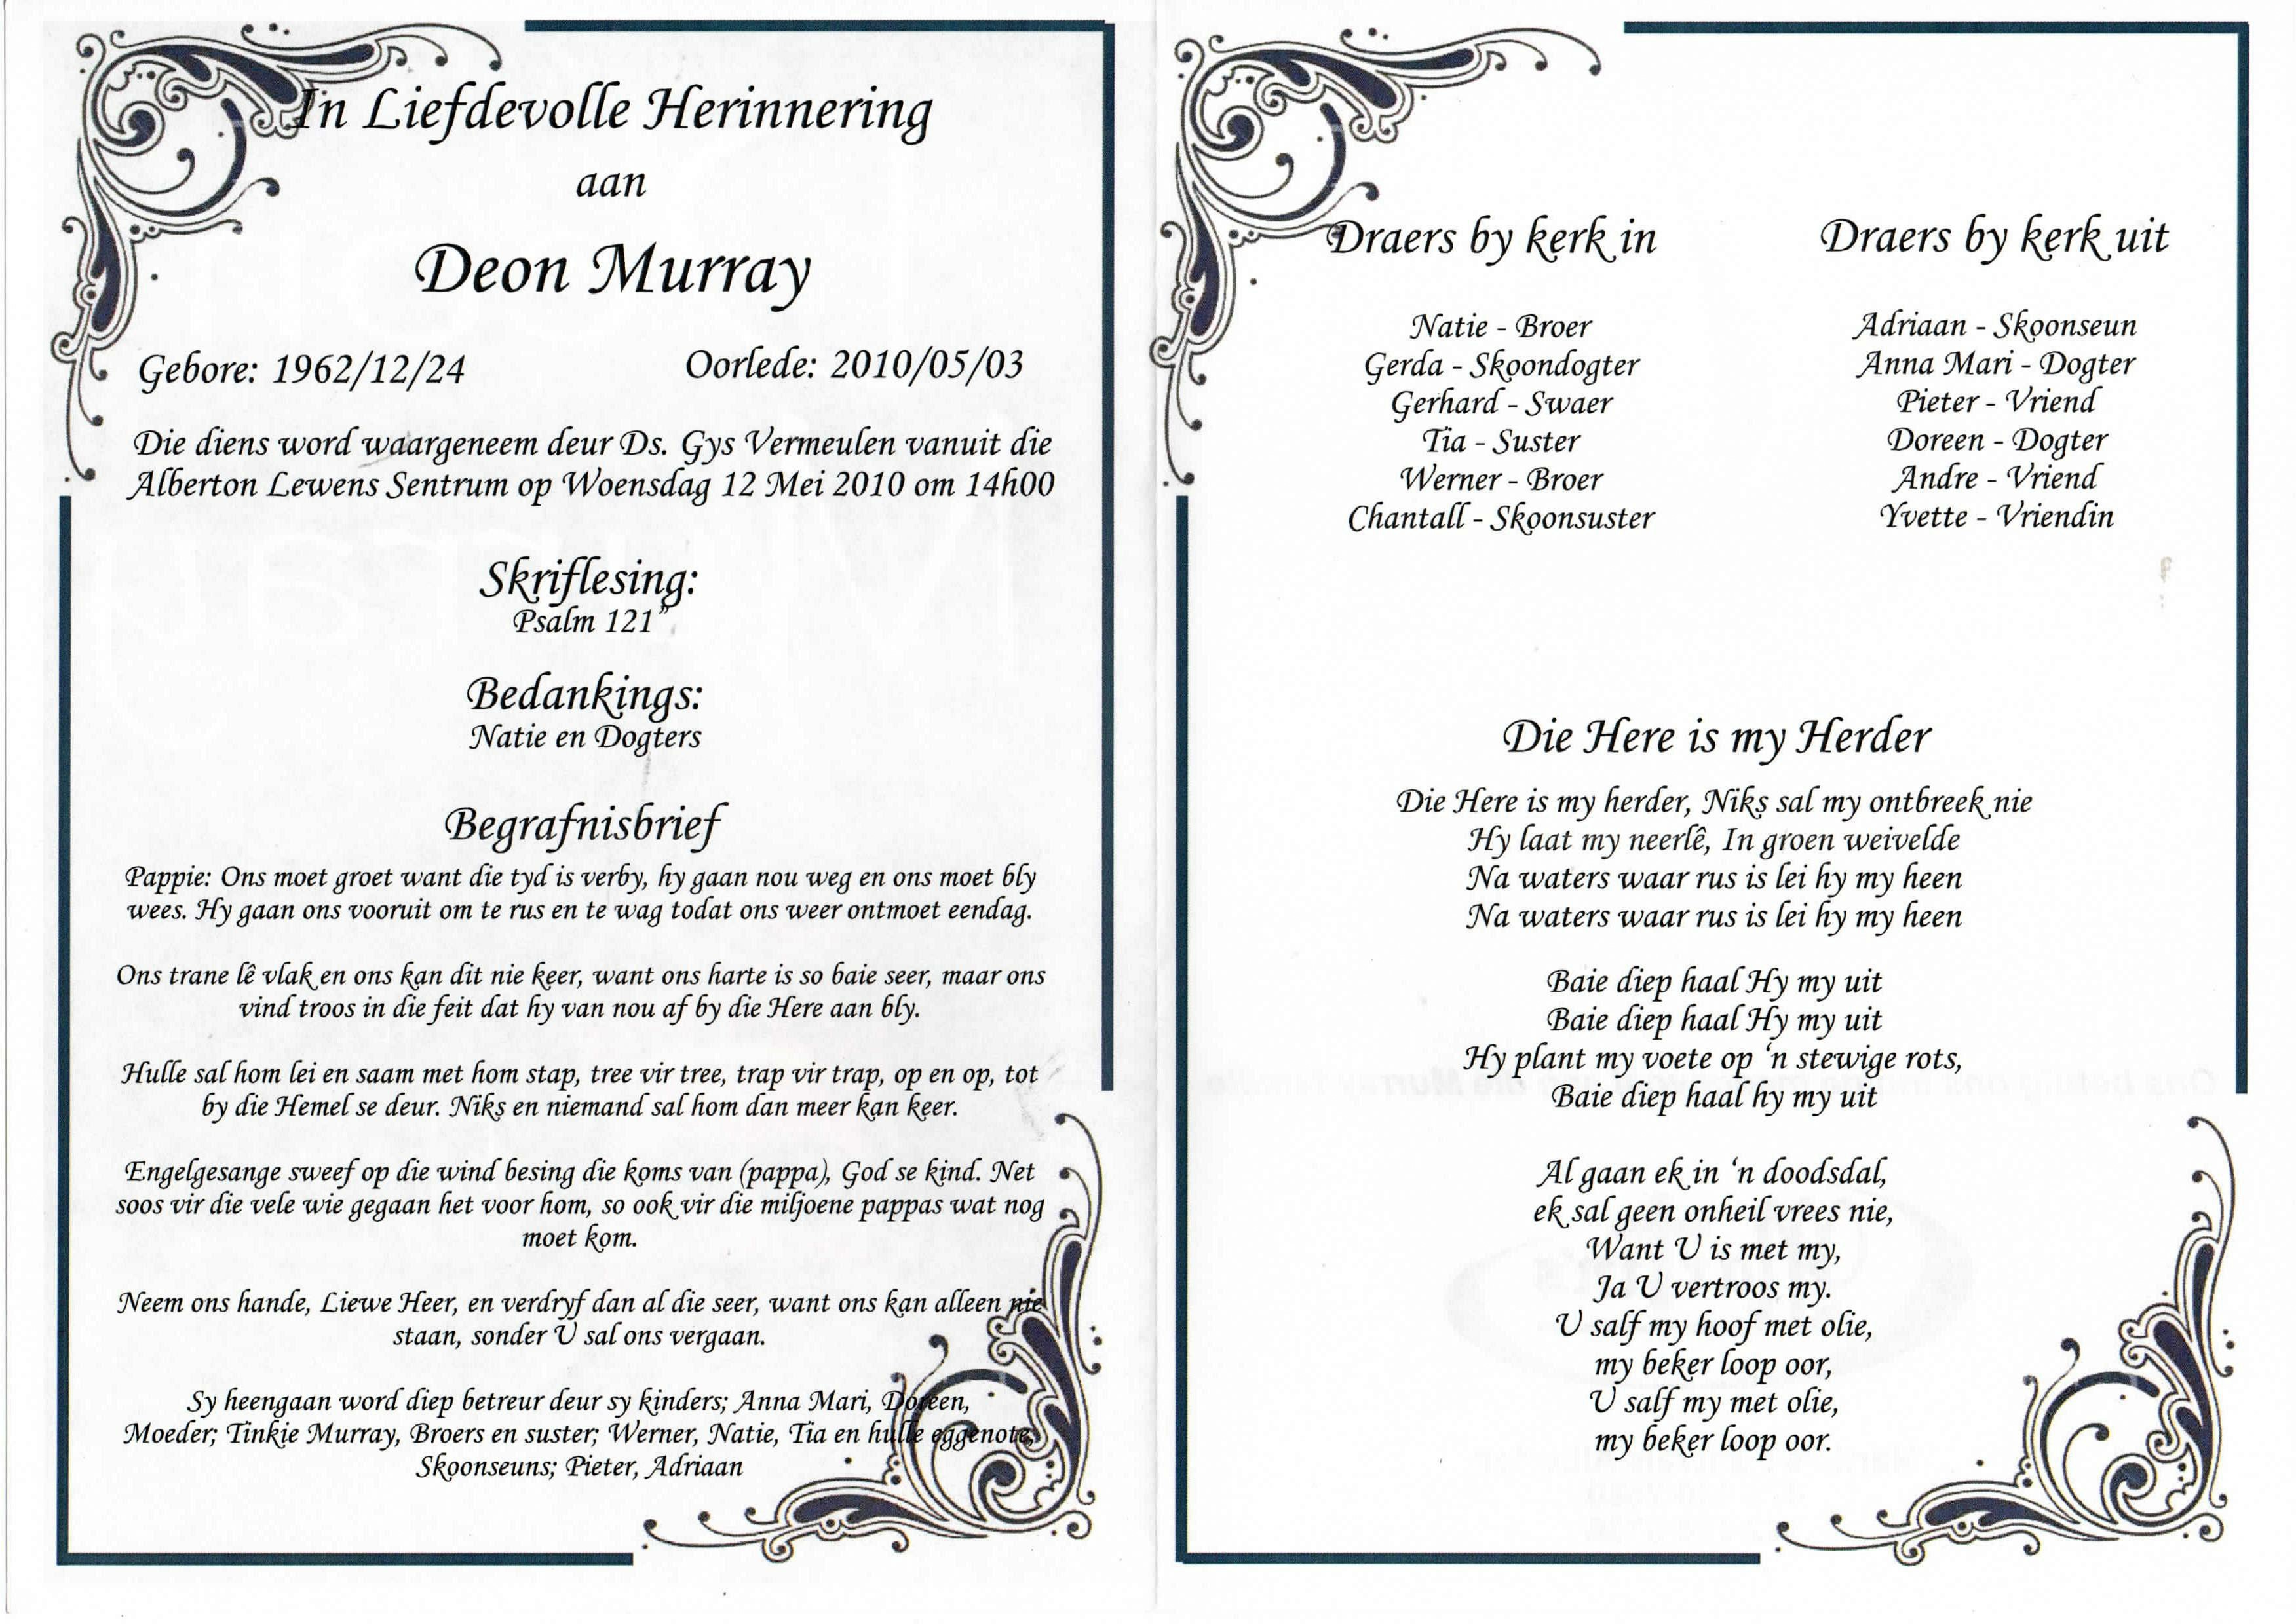 In Liefdevolle Herinnering
aan
Deon Murray
Gebore: 1962/12/24
Oorlede: 2010/05/03
Die diens word waargeneem deur Ds. Gys Vermeulen vanuit die
Alberton Lewens Sentrum op Woensdag 12 Mei 2010 om 14h00
Skriflesing:
Psalm 121”
Bedankings:
Natie en Dogters
Begrafnisbrief
Pappie: Ons moet groet want die tyd is verby, hy gaan nou weg en ons moet bly
wees. Hy gaan ons vooruit om te rus en te wag todat ons weer ontmoet eendag.
Ons trane lê vlak en ons kan dit nie keer, want ons harte is so baie seer, maar ons
vind troos in die feit dat hy van nou af by die Here aan bly.
Hulle sal hom lei en saam met hom stap, tree vir tree, trap vir trap, op en op, tot
by die Hemel se deur. Niks en niemand sal hom dan meer kan keer.
Engelgesange sweef op die wind besing die koms van (pappa), God se kind. Net
soos vir die vele wie gegaan het voor hom, so ook vir die miljoene pappas wat nog
moet kom.
Neem ons hande, Liewe Heer, en verdryf dan al die seer, want ons kan alleen nie
staan, sonder U sal ons vergaan.
Sy heengaan word diep betreur deur sy kinders; Anna Mari, Doreen,
Moeder; Tinkie Murray, Broers en suster; Werner, Natie, Tia en hulle eggenote,
Skoonseuns; Pieter, Adriaan
Draers by kerk in
Natie - Broer
Gerda - Skoondogter
Gerhard - Swaer
Tia - Suster
Werner - Broer
Chantall - Skoonsuster
Draers by kerk uit
Adriaan - Skoonseun
Anna Mari - Dogter
Pieter - Vriend
Doreen - Dogter
Andre - Vriend
Yvette - Vriendin
Die Here is my Herder
Die Here is my herder, Niks sal my ontbreek nie
Hy laat my neerlê, In groen weivelde
Na waters waar rus is lei hy my heen
Na waters waar rus is lei hy my heen
Baie diep haal Hy my uit
Baie diep haal Hy my uit
Hy plant my voete op ‘n stewige rots,
Baie diep haal hy my uit
Al gaan ek in ‘n doodsdal,
ek sal geen onheil vrees nie,
Want U is met my,
Ja U vertroos my.
U salf my hoof met olie,
my beker loop oor,
U salf my met olie,
my beker loop oor.